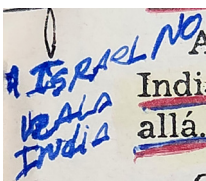 A ISRAEL NO
VEALA
INDIA
Indi
allá.